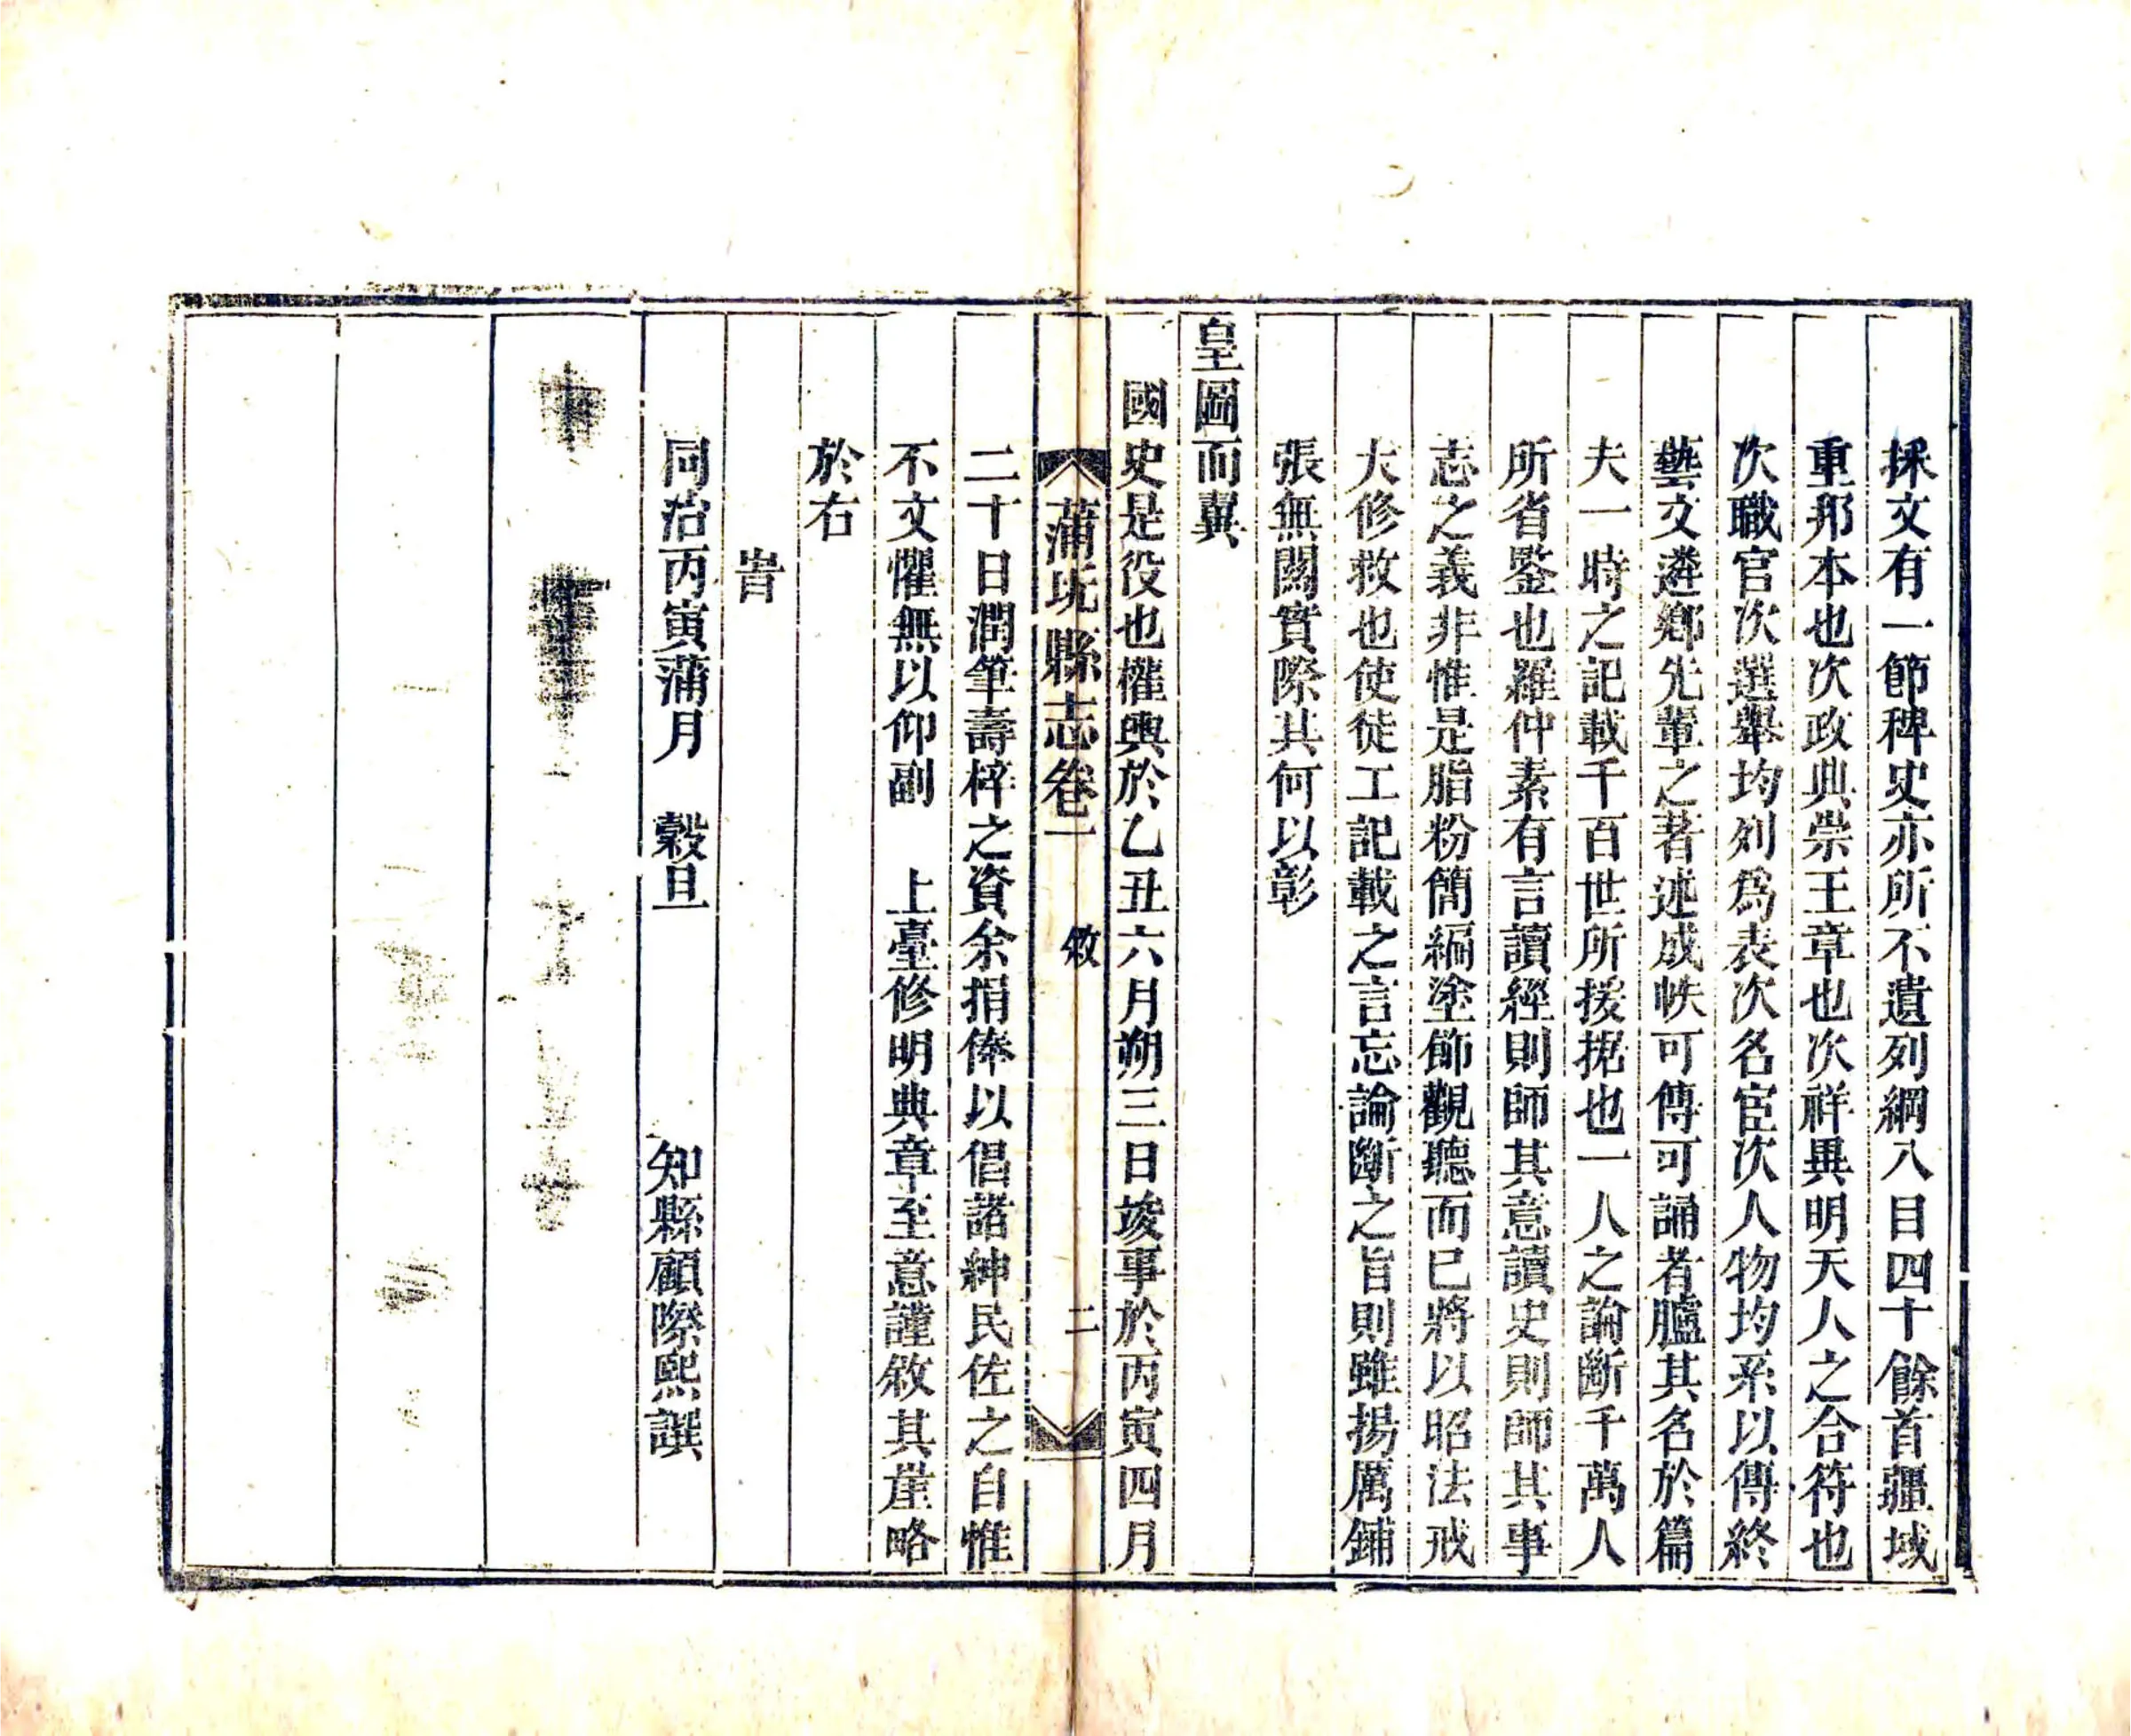 採文有一節稗史亦所不遺列綱八目四十餘首疆域
重邦本也次政典崇王章也次祥異明天人之合符也
次職官次選舉均列為表次名宦次人物均系以傳終
藝文遴鄉先輩之著述成帙可傳可誦者臚其名於篇
夫一時之記載千百世所援挩也一人之論斷千萬人
所省鑒也羅仲素有言讀經則師其意讀史則師其事
志之義非惟是脂粉簡編塗飾觀聽而已將以昭法戒
大修救也使徒工記載之言忘論斷之旨則雖揚厲鋪
張無關實際其何以彰
皇圖而翼
國史是役也權輿於乙丑六月朔三日竣事於丙寅四月
蒲圻縣志卷一 敘 二
二十日潤筆壽梓之資余捐俸以倡諸紳民佐之自惟
不文懼無以仰副 上臺修明典章至意謹敘其崖略
於右
旹
同治丙寅蒲月 穀旦 知縣顧際熙譔